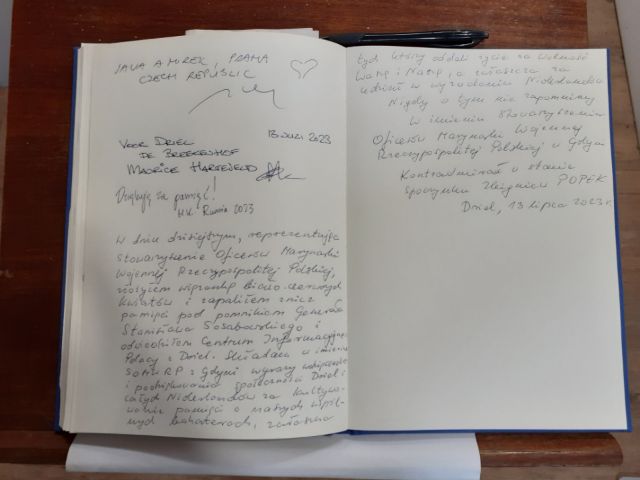 JANA A MIREK, PRAHA
CZECH REPUBLIC
VOOR DRIEL
13 JULI 2023
DE BREEKENHOF
MAURICE
Dziękuję za pamięć!
2023
W dniu dzisiejszym, reprezentując
Stowarzyszenie Oficerów Marynarki
Wojennej Rzeczypospolitej Polskiej,
złożyłem wiązankę biało-czerwonych
kwiatów i zapaliłem znicz
pamięci pod pomnikiem Generała
Stanisława Sosabowskiego i
odwiedziłem Centrum Informacyjne
Polacy z Driel. Składam w imieniu
SOMW RP z Gdyni wyrazy wdzięczności
i podziękowania społeczności Driel i
całych Niderlandów za kultywo-
wanie pamięci o naszych wspól-
nych bohaterach, zwłaszcza
tych którzy oddali życie za Wolność
Waszą i Naszą, a zwłaszcza za
udział w wyzwoleniu Niderlandów
Nigdy o tym nie zapomnimy
W imieniu Stowarzyszenia
Oficerów Marynarki Wojennej
Rzeczypospolitej Polskiej w Gdyni
Kontradmirał w stanie
spoczynku Zbigniew POPEK
Driel, 13 lipca 2023 r.